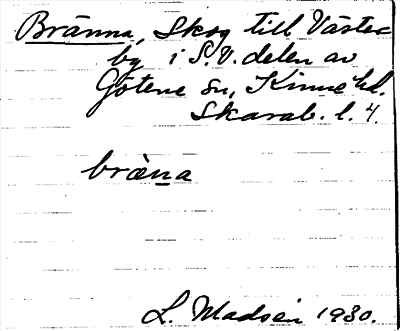 Bränna, Skog till Väster
by i S.V. delen av
Götene sn, Kinne hd.
Skarab. l. 4.
bräǹa
L. Madsén 1930.